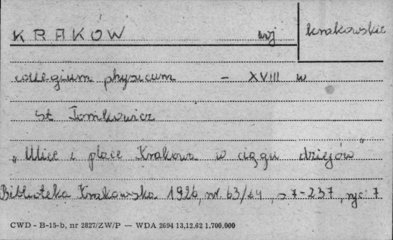 KRAKÓW woj krakowskie
collegium physicum - XVIII w
St Tomkowicz
„Ulice i place Krakowa w ciągu dziejów"
Biblioteka Krakowska 1926, nr. 63/64, s 7-237, ryc. 7
CWD - B-15-b, nr 2827/ZW/P — WDA 2694 13.12.62 1.700.000